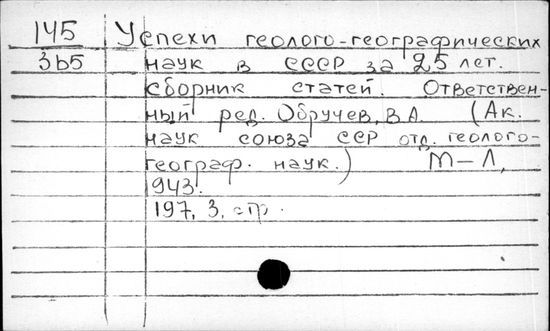 145 Успехи геолого-географических
3б5 наук в СССР за 25 лет.
Сборник статей. Ответствен-
ный ред. Обручев, В.А. (Ак.
наук союза ССР отд. геолого-
географ. наук.) М-Л,
943.
197, 3. стр.